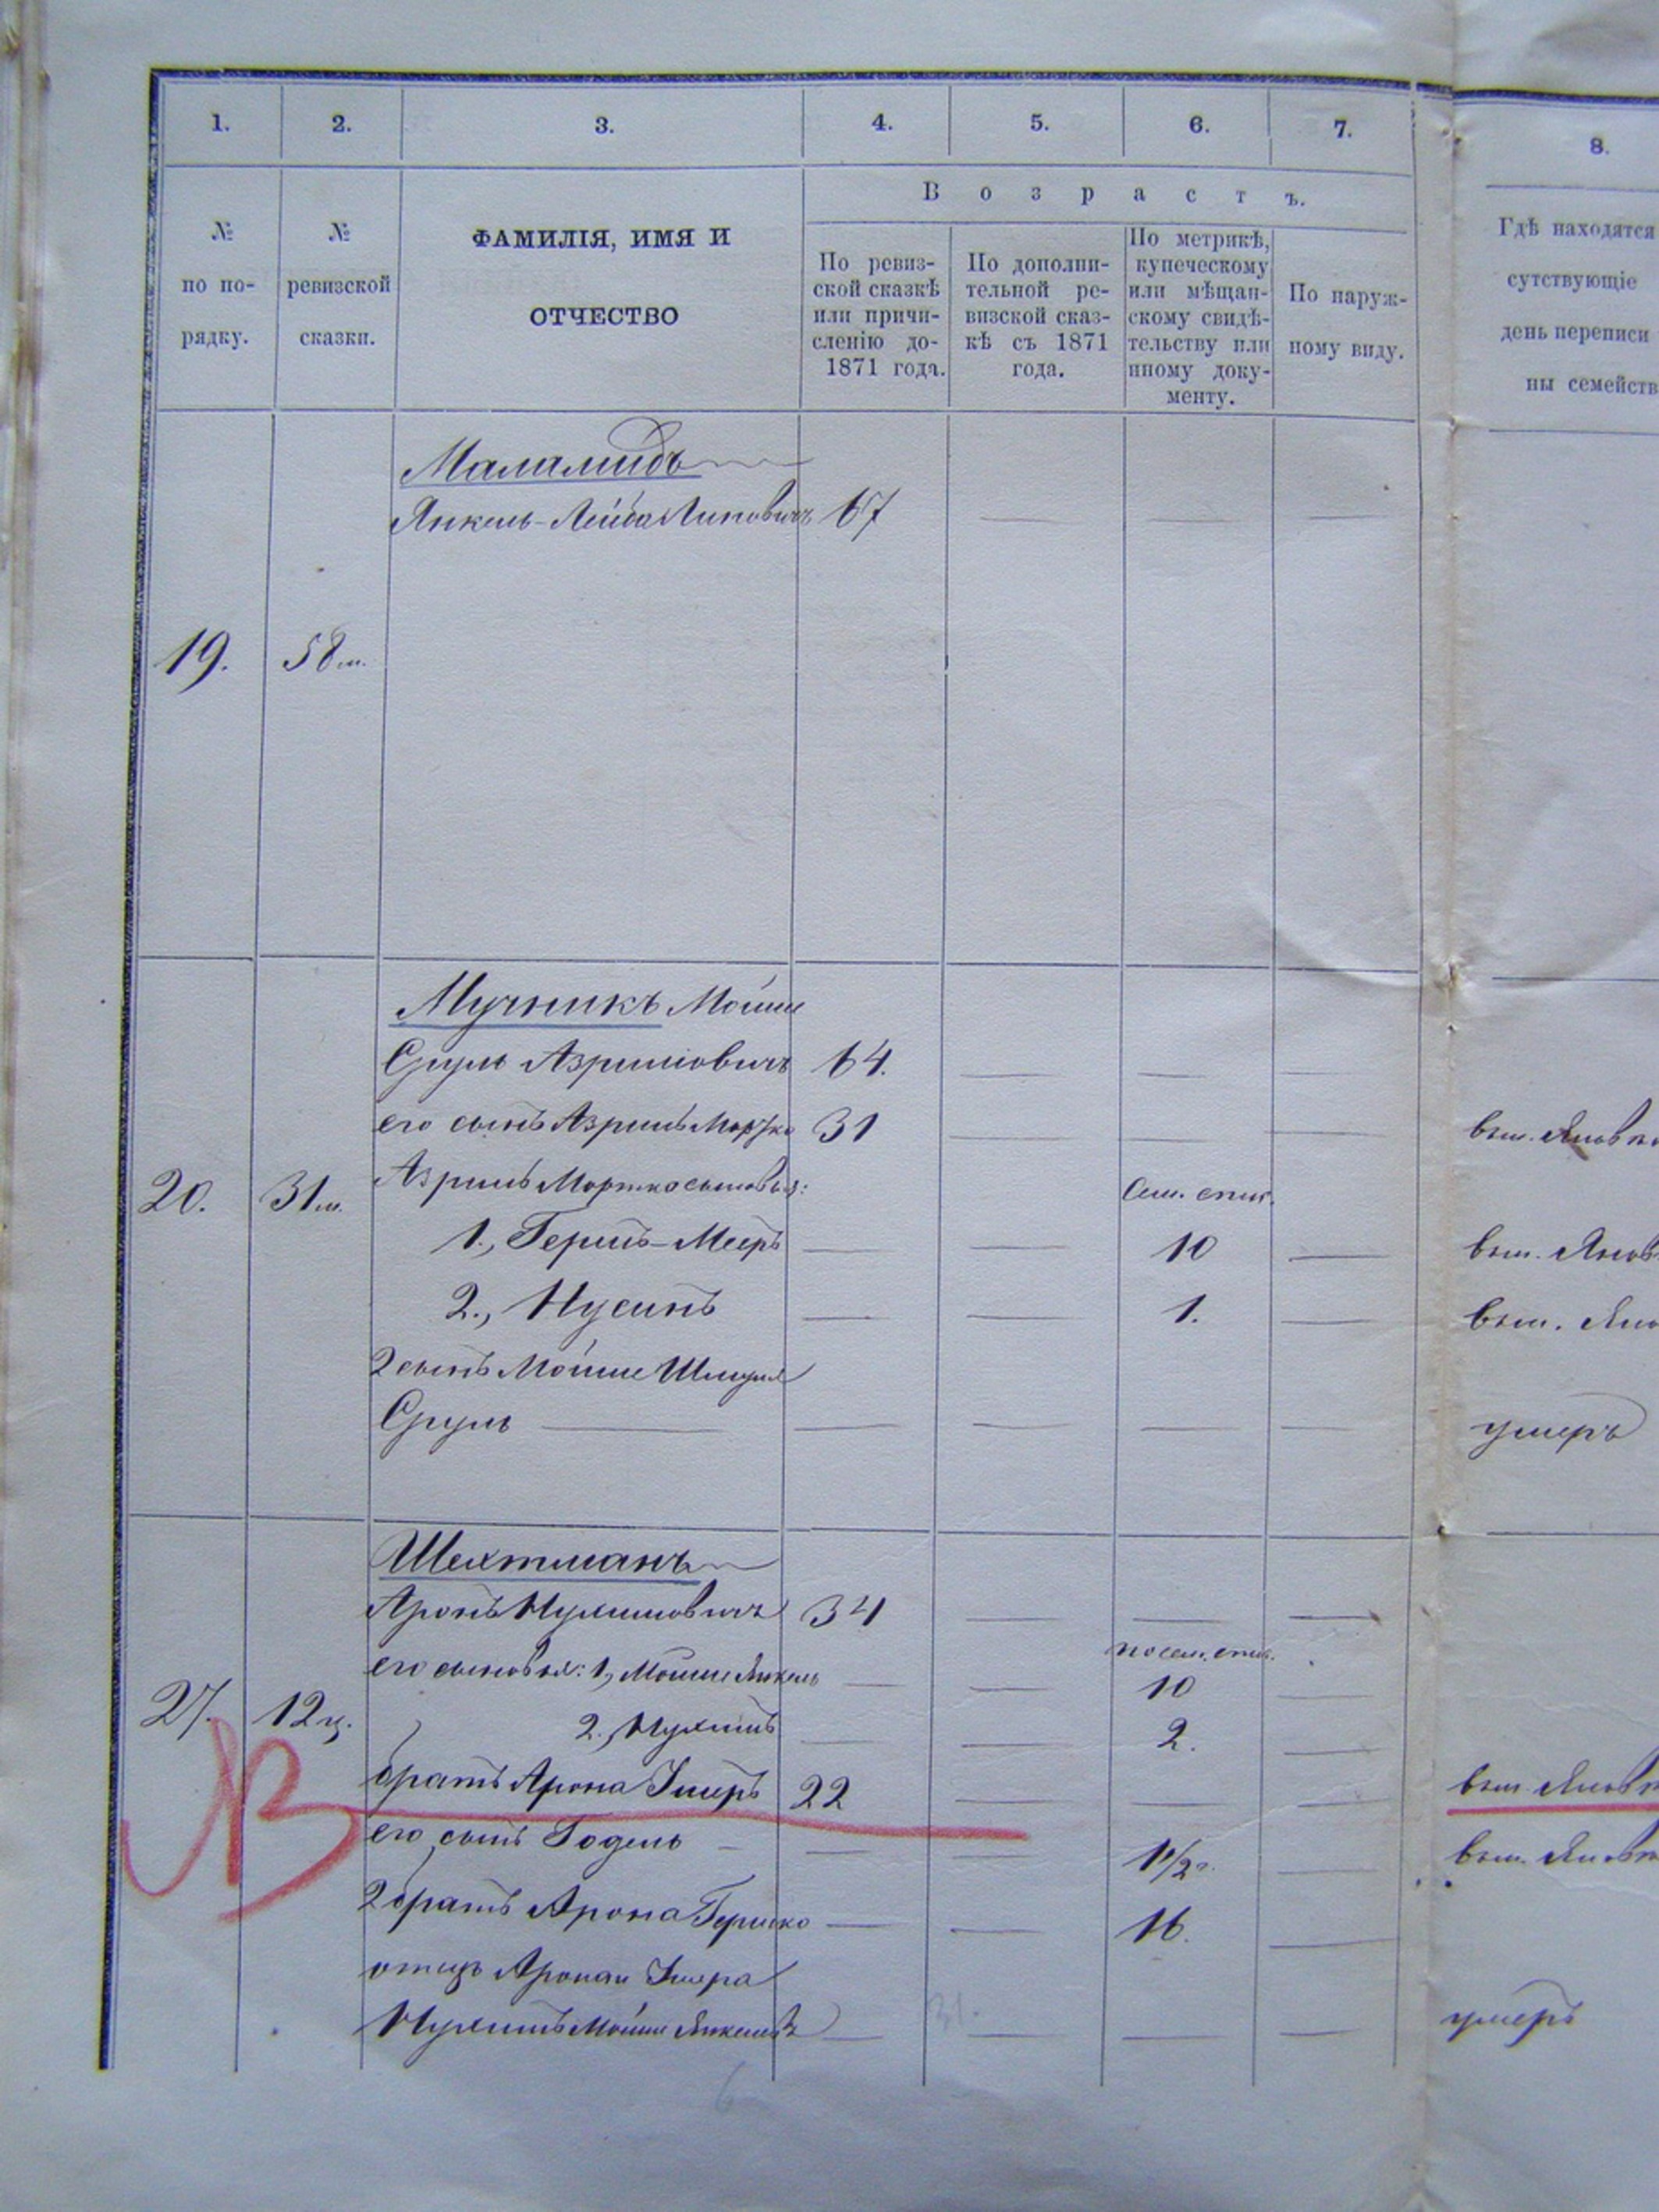 1. 2. 3. 4. 5. 6. 7. 8.
Возрастъ.
№ по по-рядку.
№ ревизской сказки.
ФАМИЛІЯ, ИМЯ И
ОТЧЕСТВО
По ревиз-
ской сказкѣ
или причи-
сленію до-
1871 года.
По дополни-
тельной ре-
визской сказ-
кѣ съ 1871
года.
По метрикѣ,
купеческому
или мѣщан-
скому свидѣ-
тельству или
иному доку-
менту.
По наруж-
ному виду.
Гдѣ находятся
сутствующіе
день переписи
ны семейств
Маламидъ
Янкель-Лейба Липовичъ 67
19. 58 м.
Мучникъ Мойше
Сруль Азриловичъ 64.
его сынъ Азриль Мортко 31 вым. Яновк
Азриль Мортко сыновья: Сем. спис.
20. 31 м.
1., Гершъ-Мееръ 10 вым. Янов
2., Нусинъ 1. вым. Яно
2 сынъ Мойше Шмуля
Сруль умеръ
Шехтманъ
Аронъ Нухимовичъ 34
его сыновья: 1, Мойше Янкель по сем. спис. 10
27. 12 ц.
2., Нухимъ 2.
братъ Арона Умеръ 22 вым. Яновк
его сынъ Годель 1 1/2 г. вым. Яновк
2 братъ Арона Гершко 16.
отецъ Арона и Умера
Нухимъ Мойше Янкелев 31. умеръ
6